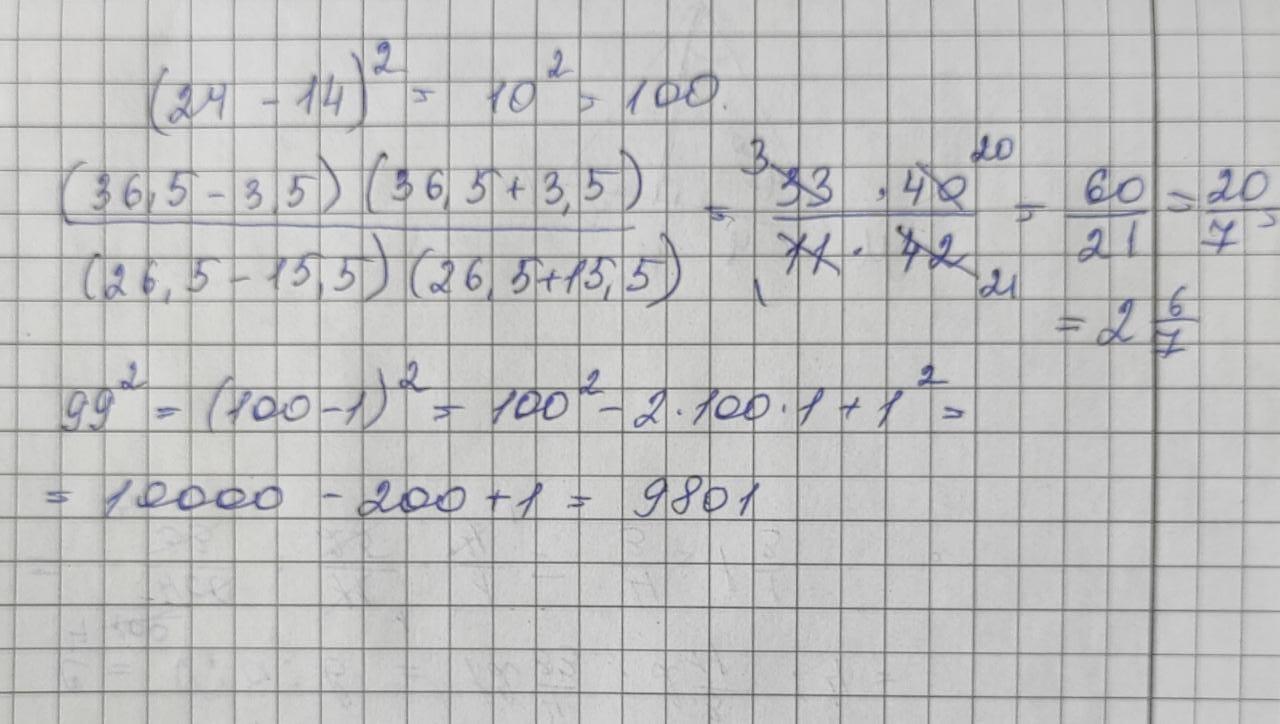 (24 - 14)² = 10² = 100.
(36,5 - 3,5) (36,5 + 3,5) / (26,5 - 15,5) (26,5 + 15,5) = 33 · 40 / 11 · 42 = 60/21 = 20/7 =
3 20 1 21
= 2 6/7
99² = (100 - 1)² = 100² - 2 · 100 · 1 + 1² =
= 10000 - 200 + 1 = 9801